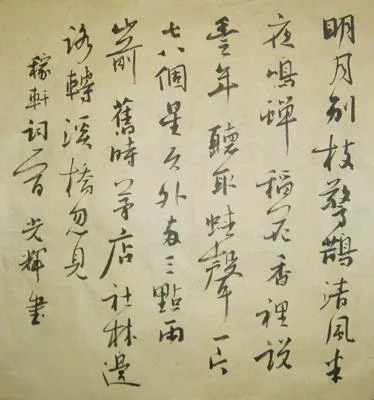 明月別枝驚鵲清風半
夜鳴蟬稻花香裡說
豐年聽取蛙聲一片
七八個星天外兩三點雨
山前舊時茅店社林邊
路轉溪橋忽見
稼軒詞一首光輝書